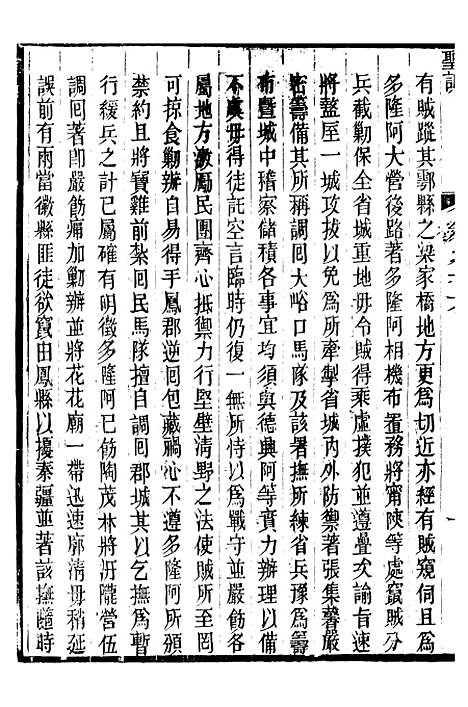 有賊蹤其鄠縣之梁家橋地方更爲切近亦經有賊窺伺且爲
多隆阿大營後路著多隆阿相機布置務將甯陝等處竄賊分
兵截勦保全省城重地毋令賊得乘虛撲犯並遵疊次諭旨速
將盩厔一城攻拔以免爲所牽掣省城內外防禦著張集馨嚴
密籌備其所稱調回大峪口馬隊及該署撫所練省兵豫爲
布暨城中稽察儲積各事宜均須與德興阿等實力辦理以備
不虞毋得徒託空言臨時仍復一無所恃以爲戰守並嚴飭各
屬地方激勵民團齊心抵禦力行堅壁清野之法使賊所至罔
可掠食勦辦自易得手鳳郡逆回包藏禍心不遵多隆阿所頒
禁約且將寶雞前紮回民馬隊擅自調回郡城其以乞撫爲暫
行緩兵之計已屬確有明徵多隆阿已飭陶茂林將汧隴營伍
調回著卽嚴飭痛加勦辦並將花花廟一帶迅速廓清毋稍延
誤前有兩當徽縣匪徒欲竄田鳳縣以擾秦疆並著該撫隨時
聖訓